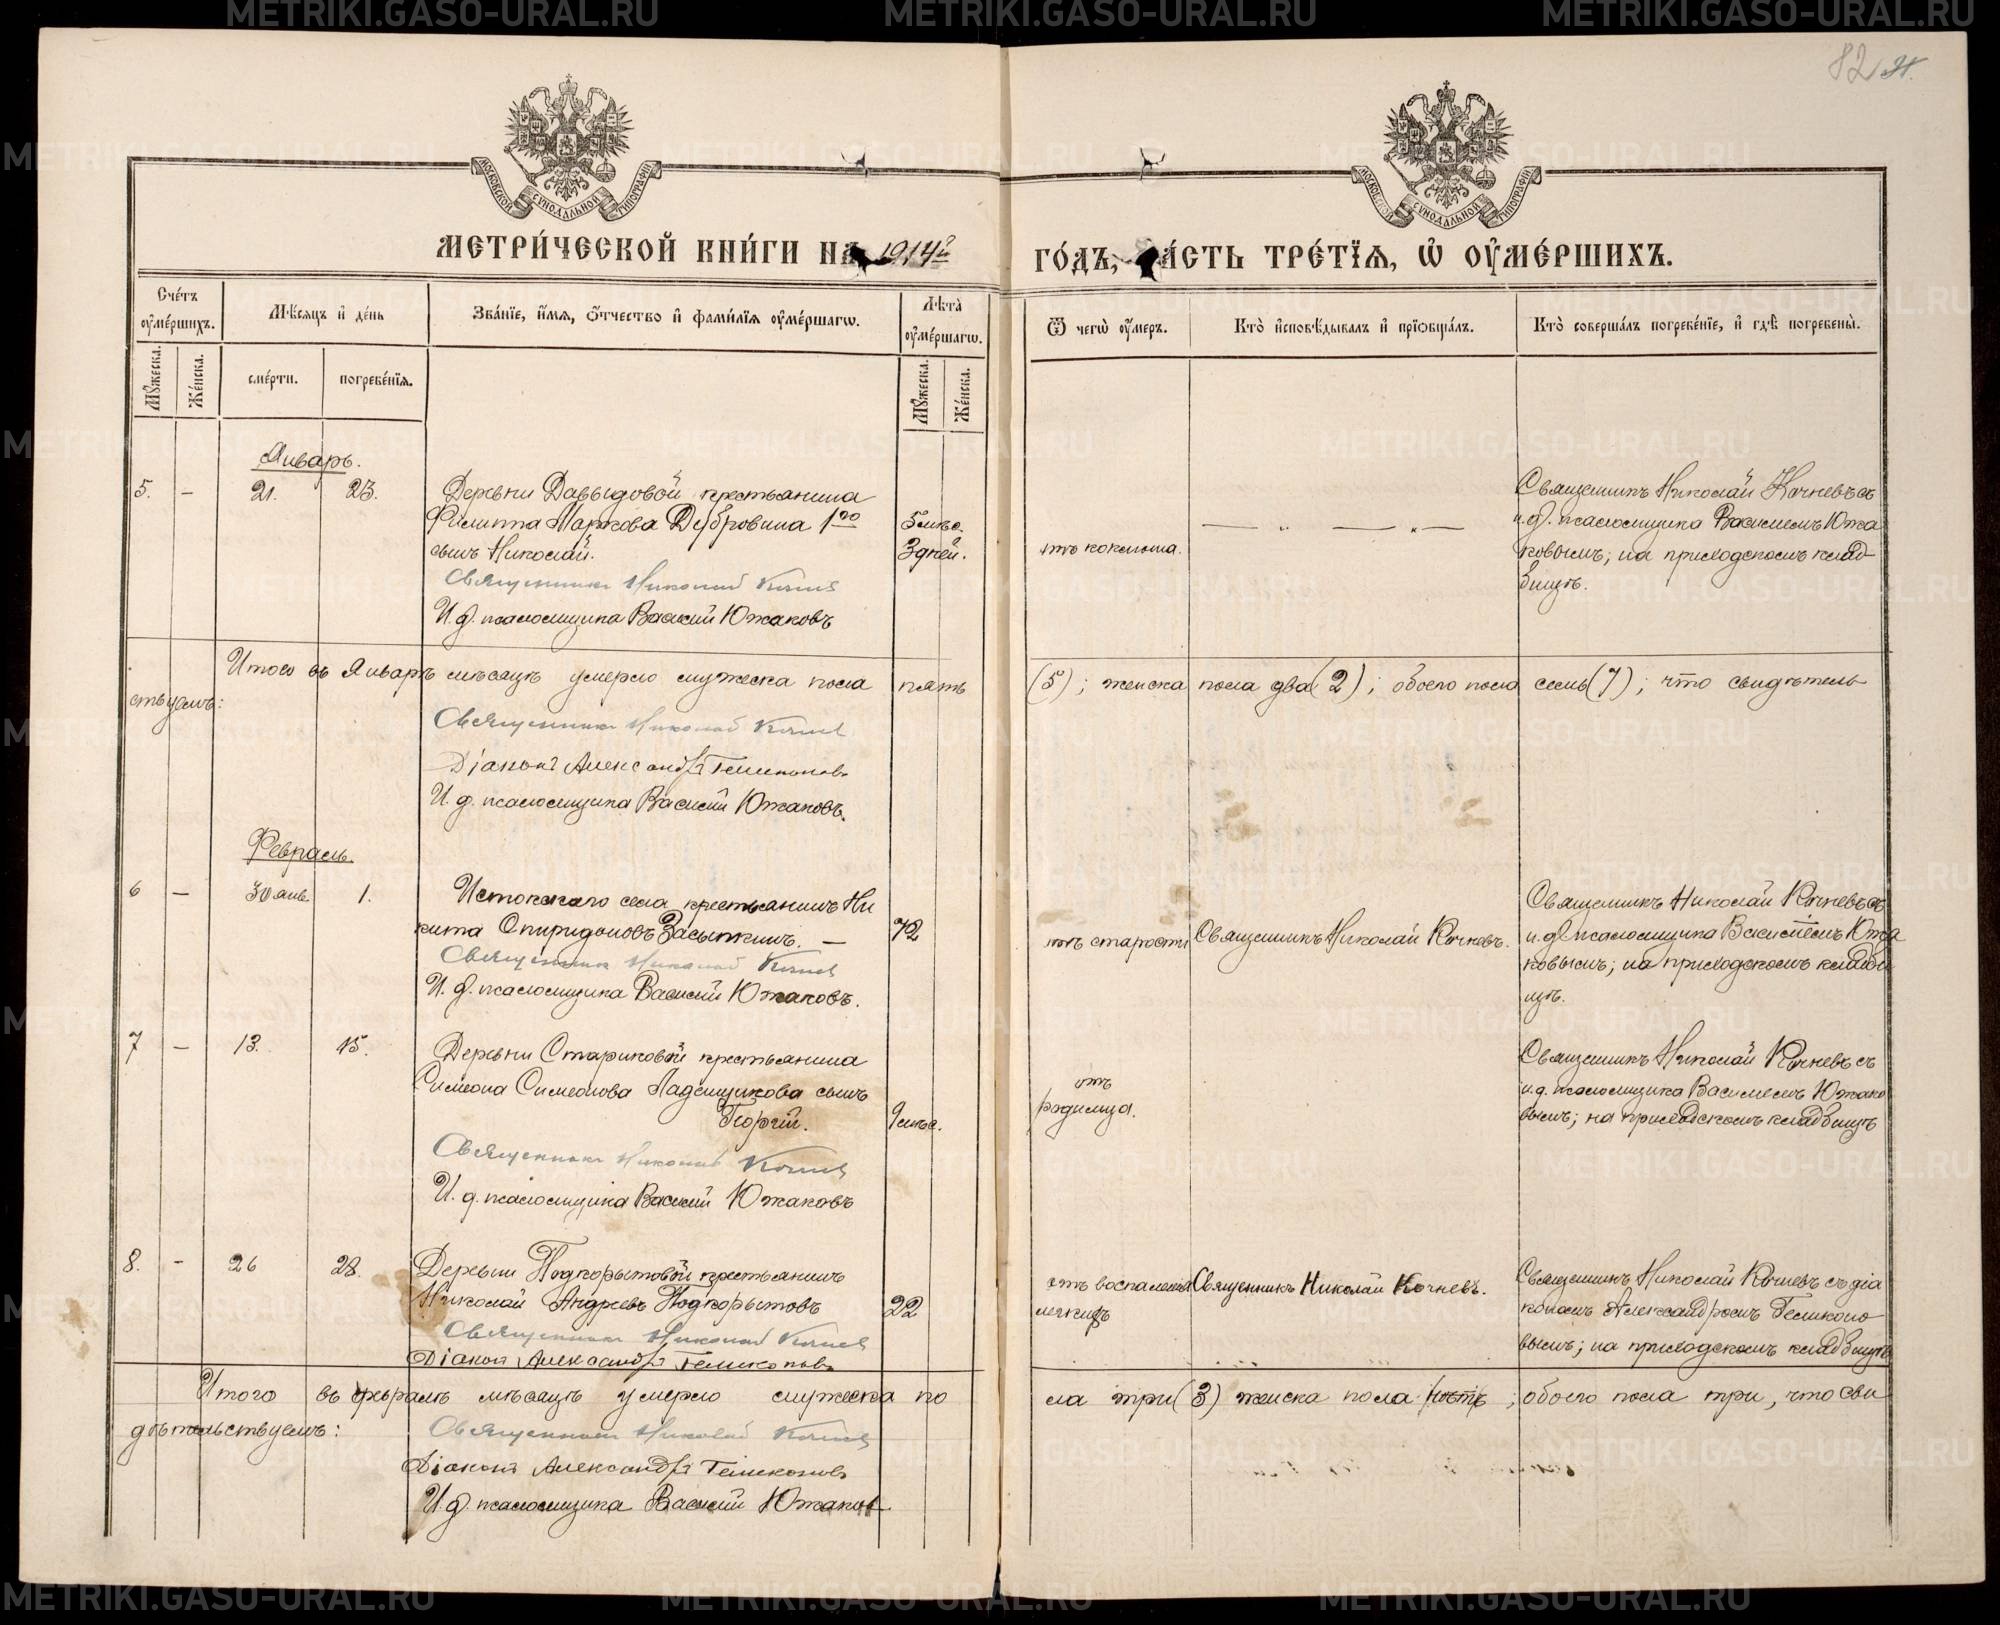 82
МЕТРИ́ЧЕСКОЙ КНИ́ГИ НА 1914й
ГО́ДЪ, ЧА́СТЬ ТРЕ́ТЇѦ, Ѽ ОУ҆МЕ́РШИХЪ.
МОСКОВСКОЙ СѴНОДАЛЬНОЙ ТИПОГРАФІИ
МОСКОВСКОЙ СѴНОДАЛЬНОЙ ТИПОГРАФІИ
Сче́тъ оу҆ме́ршихъ.
Мꙋ́жеска.
Же́нска.
Мѣ́сяцъ и҆ де́нь
сме́рти.
погребе́нїѧ.
Зва́нїе, и҆́мѧ, ѻ҆́тчество и҆ фами́лїѧ оу҆ме́ршагѡ.
Лѣ̑та оу҆ме́ршагѡ.
Мꙋ́жеска.
Же́нска.
Ѿ чегѡ̀ оу҆́меръ.
Кто̀ и҆сповѣ́дывалъ и҆ прїѡбща́лъ.
Кто̀ соверша́лъ погребе́нїе, и҆ гдѣ̀ погребены̀.
Январь.
5. – 21. 23.
Деревни Давыдовой крестьянина
Филиппа Маркова Дубровина 1го
сынъ Николай.
Священникъ Николай Кочневъ
И. д. псаломщика Василій Южаковъ
5 мѣс.
3 дней.
отъ коклюша.
— „ — „ —
Священникъ Николай Кочневъ съ
и. д. псаломщика Василіемъ Южа
ковымъ; на приходскомъ клад-
бищѣ.
Итого въ Январѣ мѣсяцѣ умерло мужеска пола пять (5); женска пола два (2); обоего пола семь (7); что свидѣтель
ствуемъ:
Священникъ Николай Кочневъ
Діаконъ Александръ
И. д. псаломщика Василій Южаковъ.
Февраль.
6 – 30 янв. 1.
Истокскаго села крестьянинъ Ни
кита Спиридоновъ Засыпкинъ. —
Священникъ Николай Кочневъ
И. д. псаломщика Василій Южаковъ.
72
отъ старости
Священникъ Николай Кочневъ.
Священникъ Николай Кочневъ съ
и. д. псаломщика Василіемъ Южа
ковымъ; на приходскомъ кладби
щѣ.
7 – 13. 15.
Деревни Стариковой крестьянина
Симеона Симеонова Ладейщикова сынъ
Георгій.
Священникъ Николай Кочневъ
И. д. псаломщика Василій Южаковъ
9 мѣс.
отъ
родимца.
Священникъ Николай Кочневъ съ
и. д. псаломщика Василіемъ Южако
вымъ; на приходскомъ кладбищѣ
8. – 26 28.
Деревни Подкорытовой крестьянинъ
Николай Андреевъ Подкорытовъ
Священникъ Николай Кочневъ
Діаконъ Александръ
22
отъ воспаленія
легкихъ
Священникъ Николай Кочневъ.
Священникъ Николай Кочневъ съ діа
кономъ Александромъ
вымъ; на приходскомъ кладбищѣ
Итого въ февралѣ мѣсяцѣ умерло мужеска по ла три (3) женска пола нѣтъ; обоего пола три, что сви
дѣтельствуемъ:
Священникъ Николай Кочневъ
Діаконъ Александръ
И. д. псаломщика Василій Южаковъ
METRIKI.GASO-URAL.RU